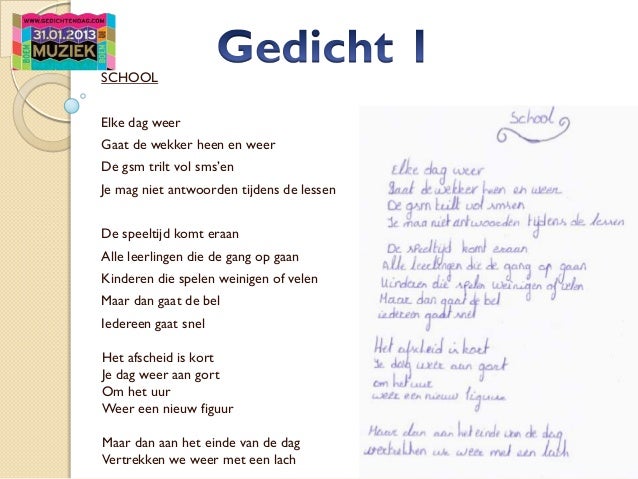 WWW.GEDICHTENDAG.COM
31.01.2013
MUZIEK
BOEM
BOEM
Gedicht 1
SCHOOL
Elke dag weer
Gaat de wekker heen en weer
De gsm trilt vol sms'en
Je mag niet antwoorden tijdens de lessen
De speeltijd komt eraan
Alle leerlingen die de gang op gaan
Kinderen die spelen weinigen of velen
Maar dan gaat de bel
Iedereen gaat snel
Het afscheid is kort
Je dag weer aan gort
Om het uur
Weer een nieuw figuur
Maar dan aan het einde van de dag
Vertrekken we weer met een lach
School
Elke dag weer
Gaat de wekker heen en weer
De gsm trilt vol smsen
Je mag niet antwoorden tijdens de lessen
De speeltijd komt eraan
Alle leerlingen die de gang op gaan
Kinderen die spelen weinigen of velen
Maar dan gaat de bel
iedereen gaat snel
Het afscheid is kort
Je dag weer aan gort
om het uur
weer een nieuw figuur
Maar dan aan het einde van de dag
vertrekken we weer met een lach